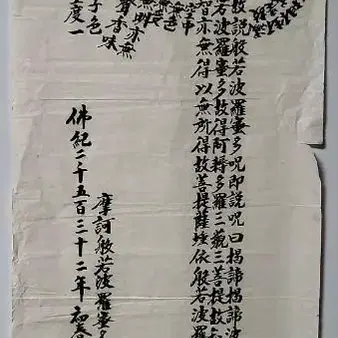 故說般若波羅蜜多咒即說咒曰揭諦揭諦波
若波羅蜜多故得阿耨多羅三藐三菩提故知
智亦無得以無所得故菩提薩埵依般若波羅
明亦無
聲香味
子色
度一
摩訶般若波羅蜜多
佛紀二千五百三十二年初春